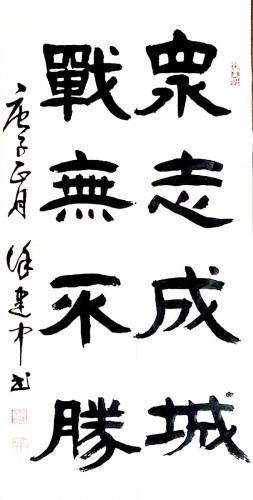 眾志成城
戰無不勝
庚子正月 徐建中书